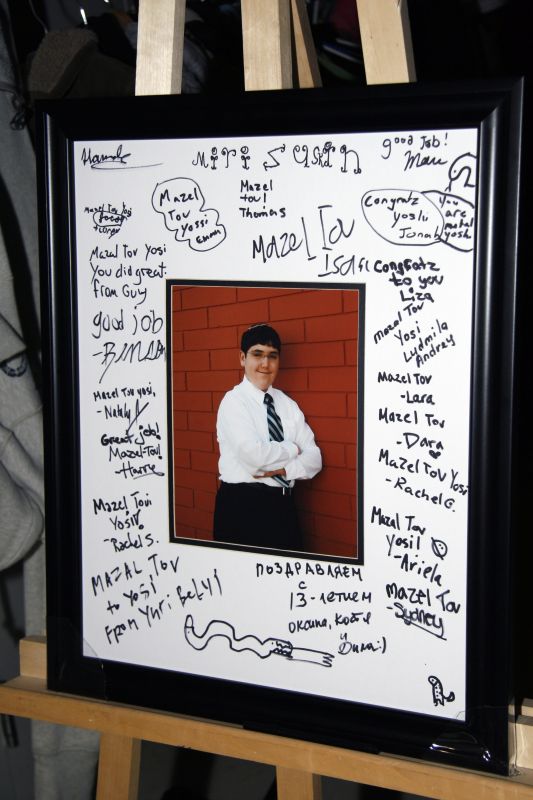 good Job!
Mazel
Tov
Yossi
Emma
Mazel
tov!
Thomas
Congratz
Yoshi
Jonah
You
are
metal
yosh
Mazel Tov
Mazal Tov Yosi
You did great.
from Guy
Congratz
to you
Liza
good job
Mazel Tov
Yosi
Ludmila
Andrey
Mazel Tov
-Lara
Mazel Tov Yosi,
Mazel Tov
-Dara
Great job!
Mazel-Tov!
Mazel Tov Yosi
-Rachel G.
Mazel Tov
Yosi!
-Rachel S.
Mazel Tov
Yosi!
-Ariela
MAZAL TOV
to Yosi
From Yuri Belyi
ПОЗДРАВЛЯЕМ
С
13-летием
Оксана, Костя
и Дима:)
Mazel Tov
-Sydney